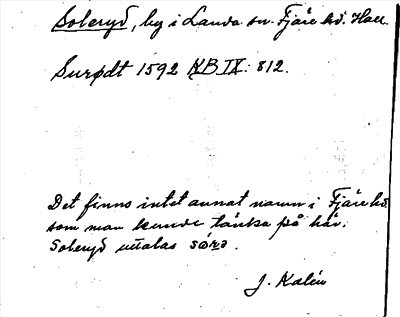 Soleryd, by i Landa sn. Fjäre hd. Hall.
Surødt 1592 NB IX: 812.
Det finns intet annat namn i Fjäre hd
som man kunde tänka på här.
Soleryd uttalas sørə.
J. Kalén